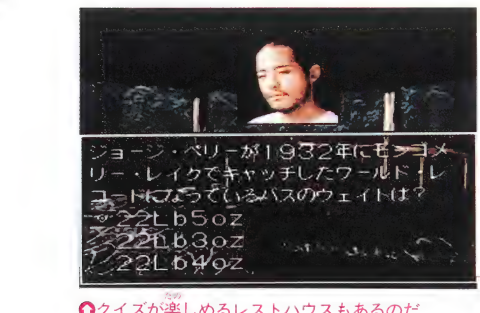 ジョージ・ペリーが1932年にモンゴメ
リー・レイクでキャッチしたワールド・レ
コードになっているバスのウェイトは？
22Lb5oz
22Lb3oz
22Lb4oz
たの
クイズが楽しめるレストハウスもあるのだ